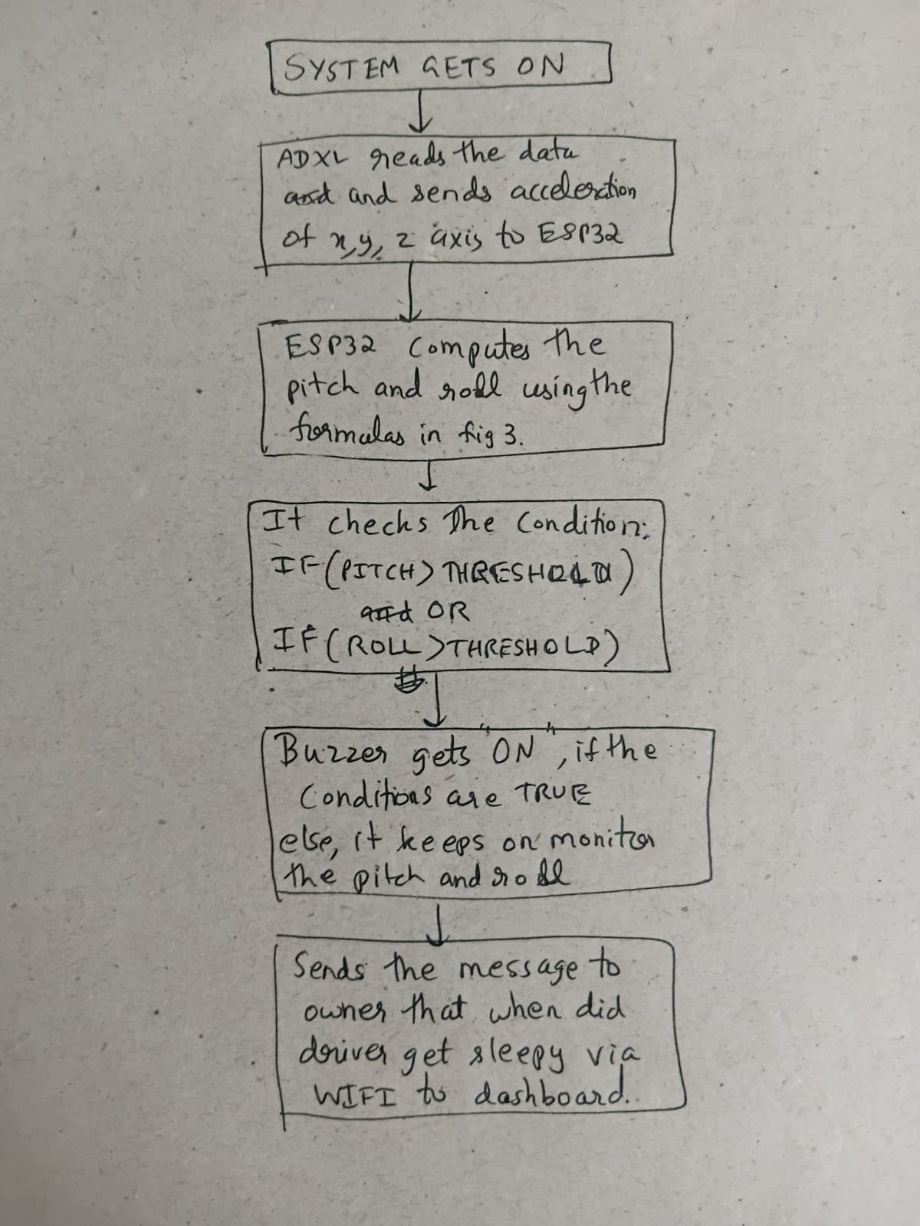 SYSTEM GETS ON
ADXL reads the data
and and sends acceleration
of x,y, z axis to ESP32
ESP32 computes the
pitch and roll using the
formulas in fig 3.
It checks The Condition:
IF(PITCH>THRESHOLD)
and OR
IF(ROLL>THRESHOLD)
Buzzer gets "ON", if the
Conditions are TRUE
else, it keeps on monitor
the pitch and roll
Sends the message to
owner that when did
driver get sleepy via
WIFI to dashboard.